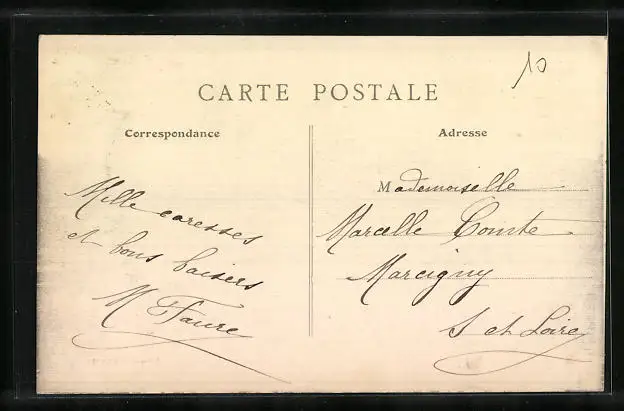 10
CARTE POSTALE
Correspondance
Adresse
Mille caresses
et bons baisers
M Faure
Mademoiselle
Marcelle Comte
Marcigny
S et Loire